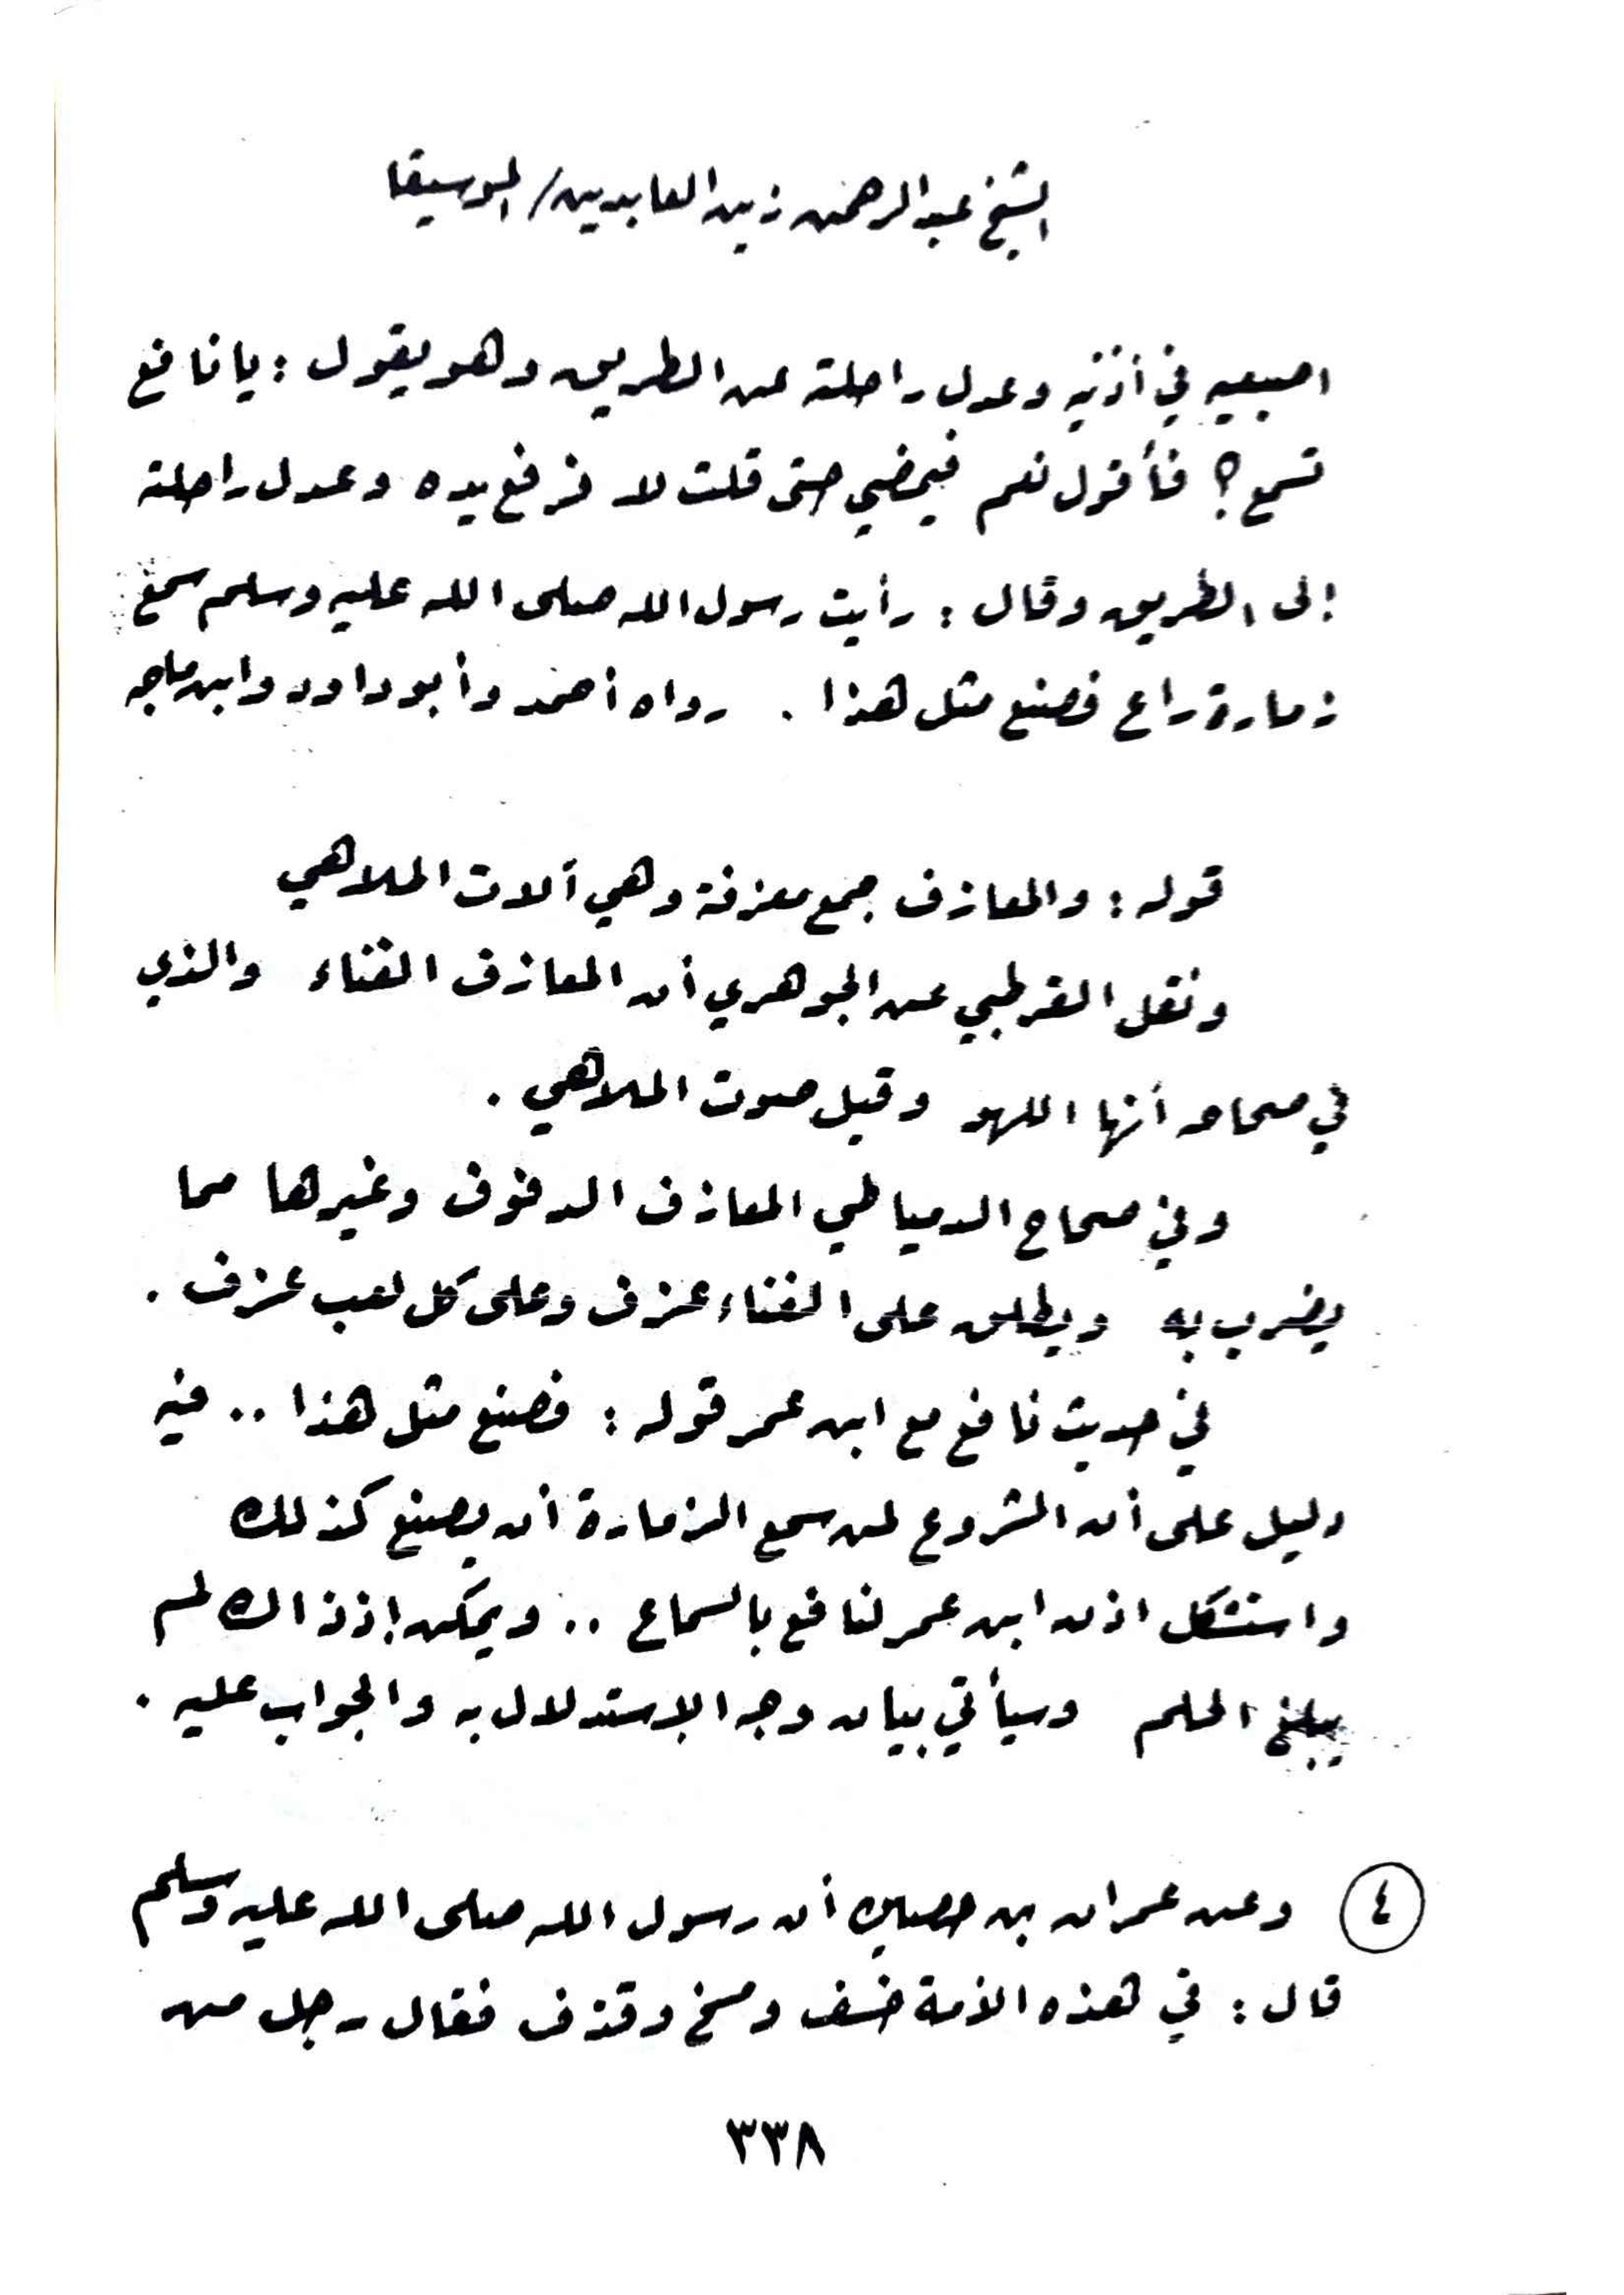 الشيخ عبدالرحمن زين العابدين / الموسيقا
اصبعيه في أذنيه وعدل راحلته عن الطريق وهو يقول : يا نافع
تسمع ؟ فأقول نعم فيمضي حتى قلت لا فرفع يده وعدل راحلته
إلى الطريق وقال : رأيت رسول الله صلى الله عليه وسلم سمع
زمارة راع فصنع مثل هذا . رواه أحمد وأبو داود وابن ماجه
قوله : والمعازف جمع معزفة وهي آلات الملاهي
ونقل القرطبي عن الجوهري أن المعازف الغناء والذي
في صحاحه أنها اللهو وقيل صوت الملاهي .
وفي صحاح الدمياطي المعازف الدفوف وغيرها مما
يضرب به ويطلق على الغناء عزف وعلى كل لعب عزف .
في حديث نافع مع ابن عمر قوله : فصنع مثل هذا .. فيه
دليل على أن المشروع لمن سمع الزمارة أن يصنع كذلك
واستشكل اذن ابن عمر لنافع بالسماع .. ويمكن إذ ذاك لم
يبلغ الحلم وسيأتي بيان وجه الإستدلال به والجواب عليه .
٤ وعن عمران بن حصين أن رسول الله صلى الله عليه وسلم
قال : في هذه الأمة خسف ومسخ وقذف فقال رجل من
٣٣٨